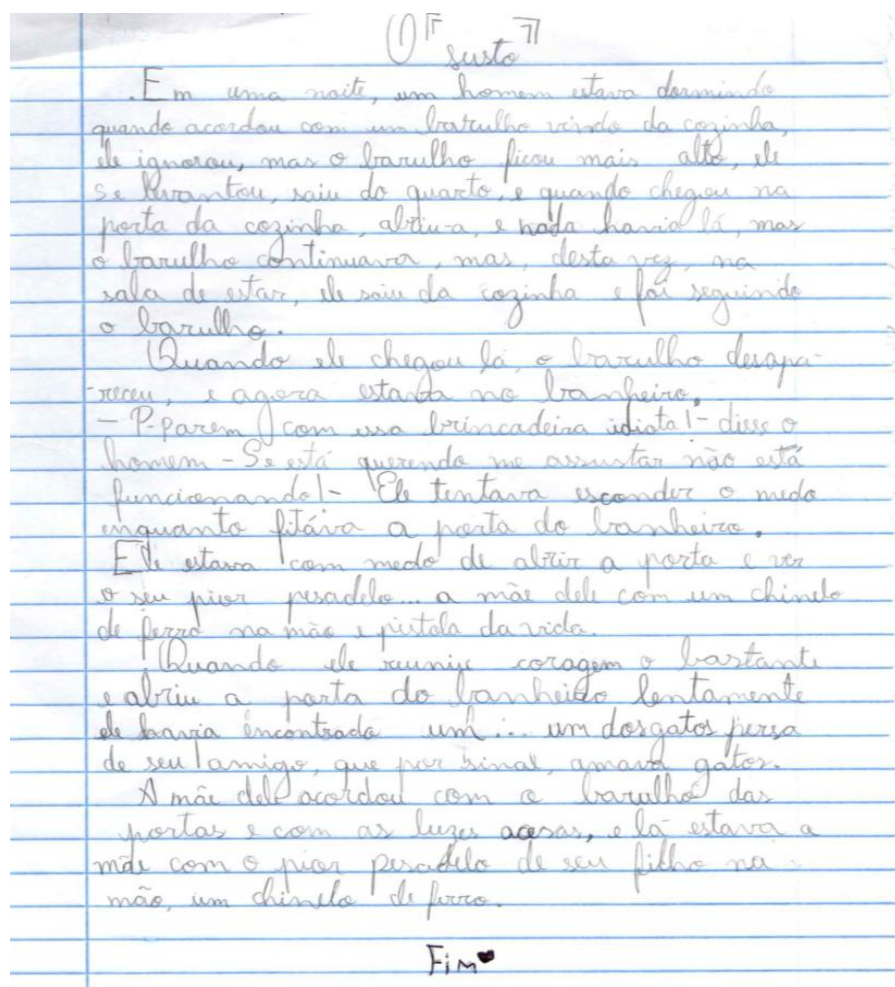 O『susto』
. Em uma noite, um homem estava dormindo
quando acordou com um barulho vindo da cozinha,
ele ignorou, mas o barulho ficou mais alto, ele
se levantou, saiu do quarto, e quando chegou na
porta da cozinha, abriu-a, e nada havia lá, mas
o barulho continuava, mas, desta vez, na
sala de estar, ele saiu da cozinha e foi seguindo
o barulho.
Quando ele chegou lá, o barulho desapa-
-receu, e agora estava no banheiro.
- P-parem com essa brincadeira idiota!- disse o
homem - Se está querendo me assustar não está
funcionando!- Ele tentava esconder o medo
enquanto fitáva a porta do banheiro.
Ele estava com medo de abrir a porta e ver
o seu pior pesadelo... a mãe dele com um chinelo
de ferro na mão e pistola da vida.
Quando ele reuniu coragem o bastante
e abriu a porta do banheiro lentamente
ele havia encontrado um... um dos gatos persa
de seu amigo, que por sinal, amava gatos.
A mãe dele acordou com o barulho das
portas e com as luzes acesas, e lá estava a
mãe com o pior pesadelo de seu filho na
mão, um chinelo de ferro.
Fim♥